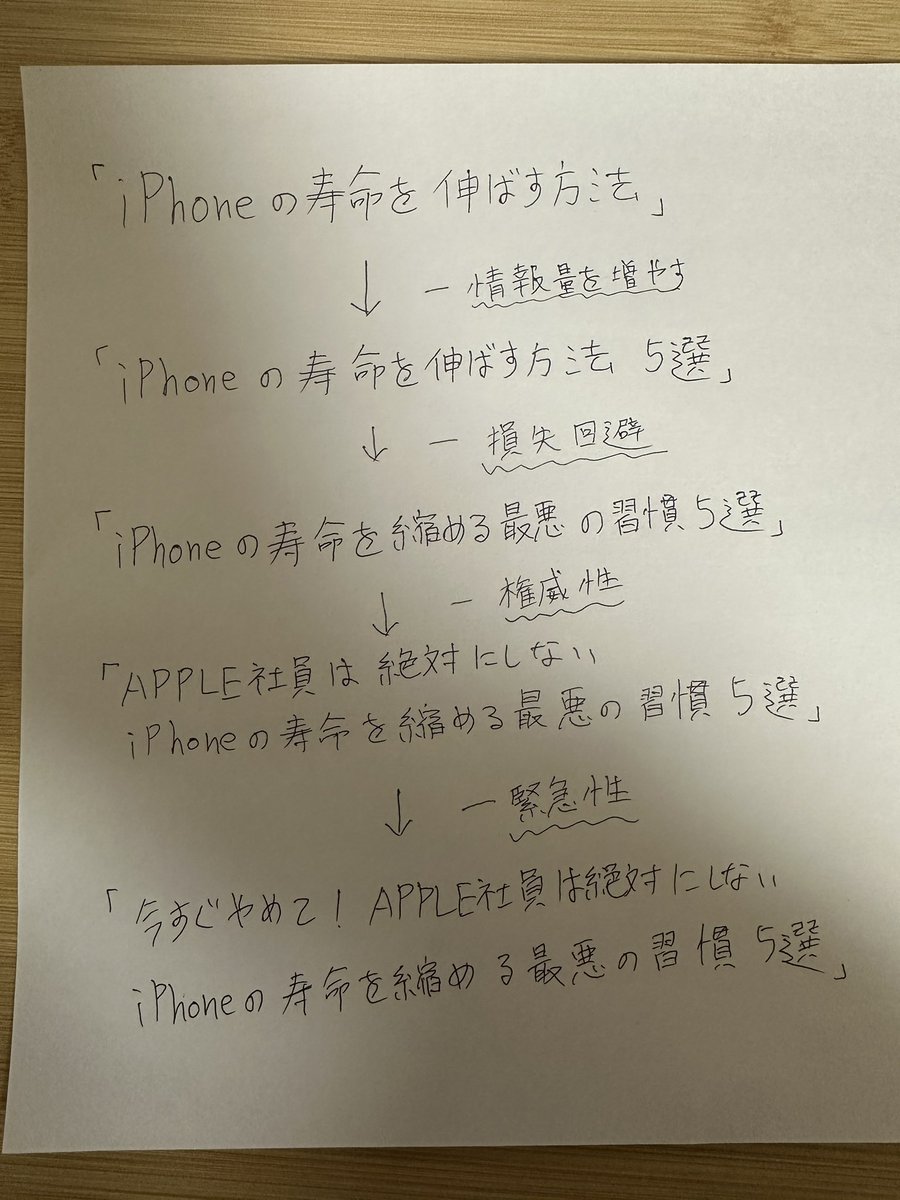 「iPhoneの寿命を伸ばす方法」
↓ ー 情報量を増やす
「iPhoneの寿命を伸ばす方法 5選」
↓ ー 損失回避
「iPhoneの寿命を縮める最悪の習慣5選」
↓ ー 権威性
「APPLE社員は絶対にしない
iPhoneの寿命を縮める最悪の習慣5選」
↓ ー 緊急性
「今すぐやめて！APPLE社員は絶対にしない
iPhoneの寿命を縮める最悪の習慣5選」